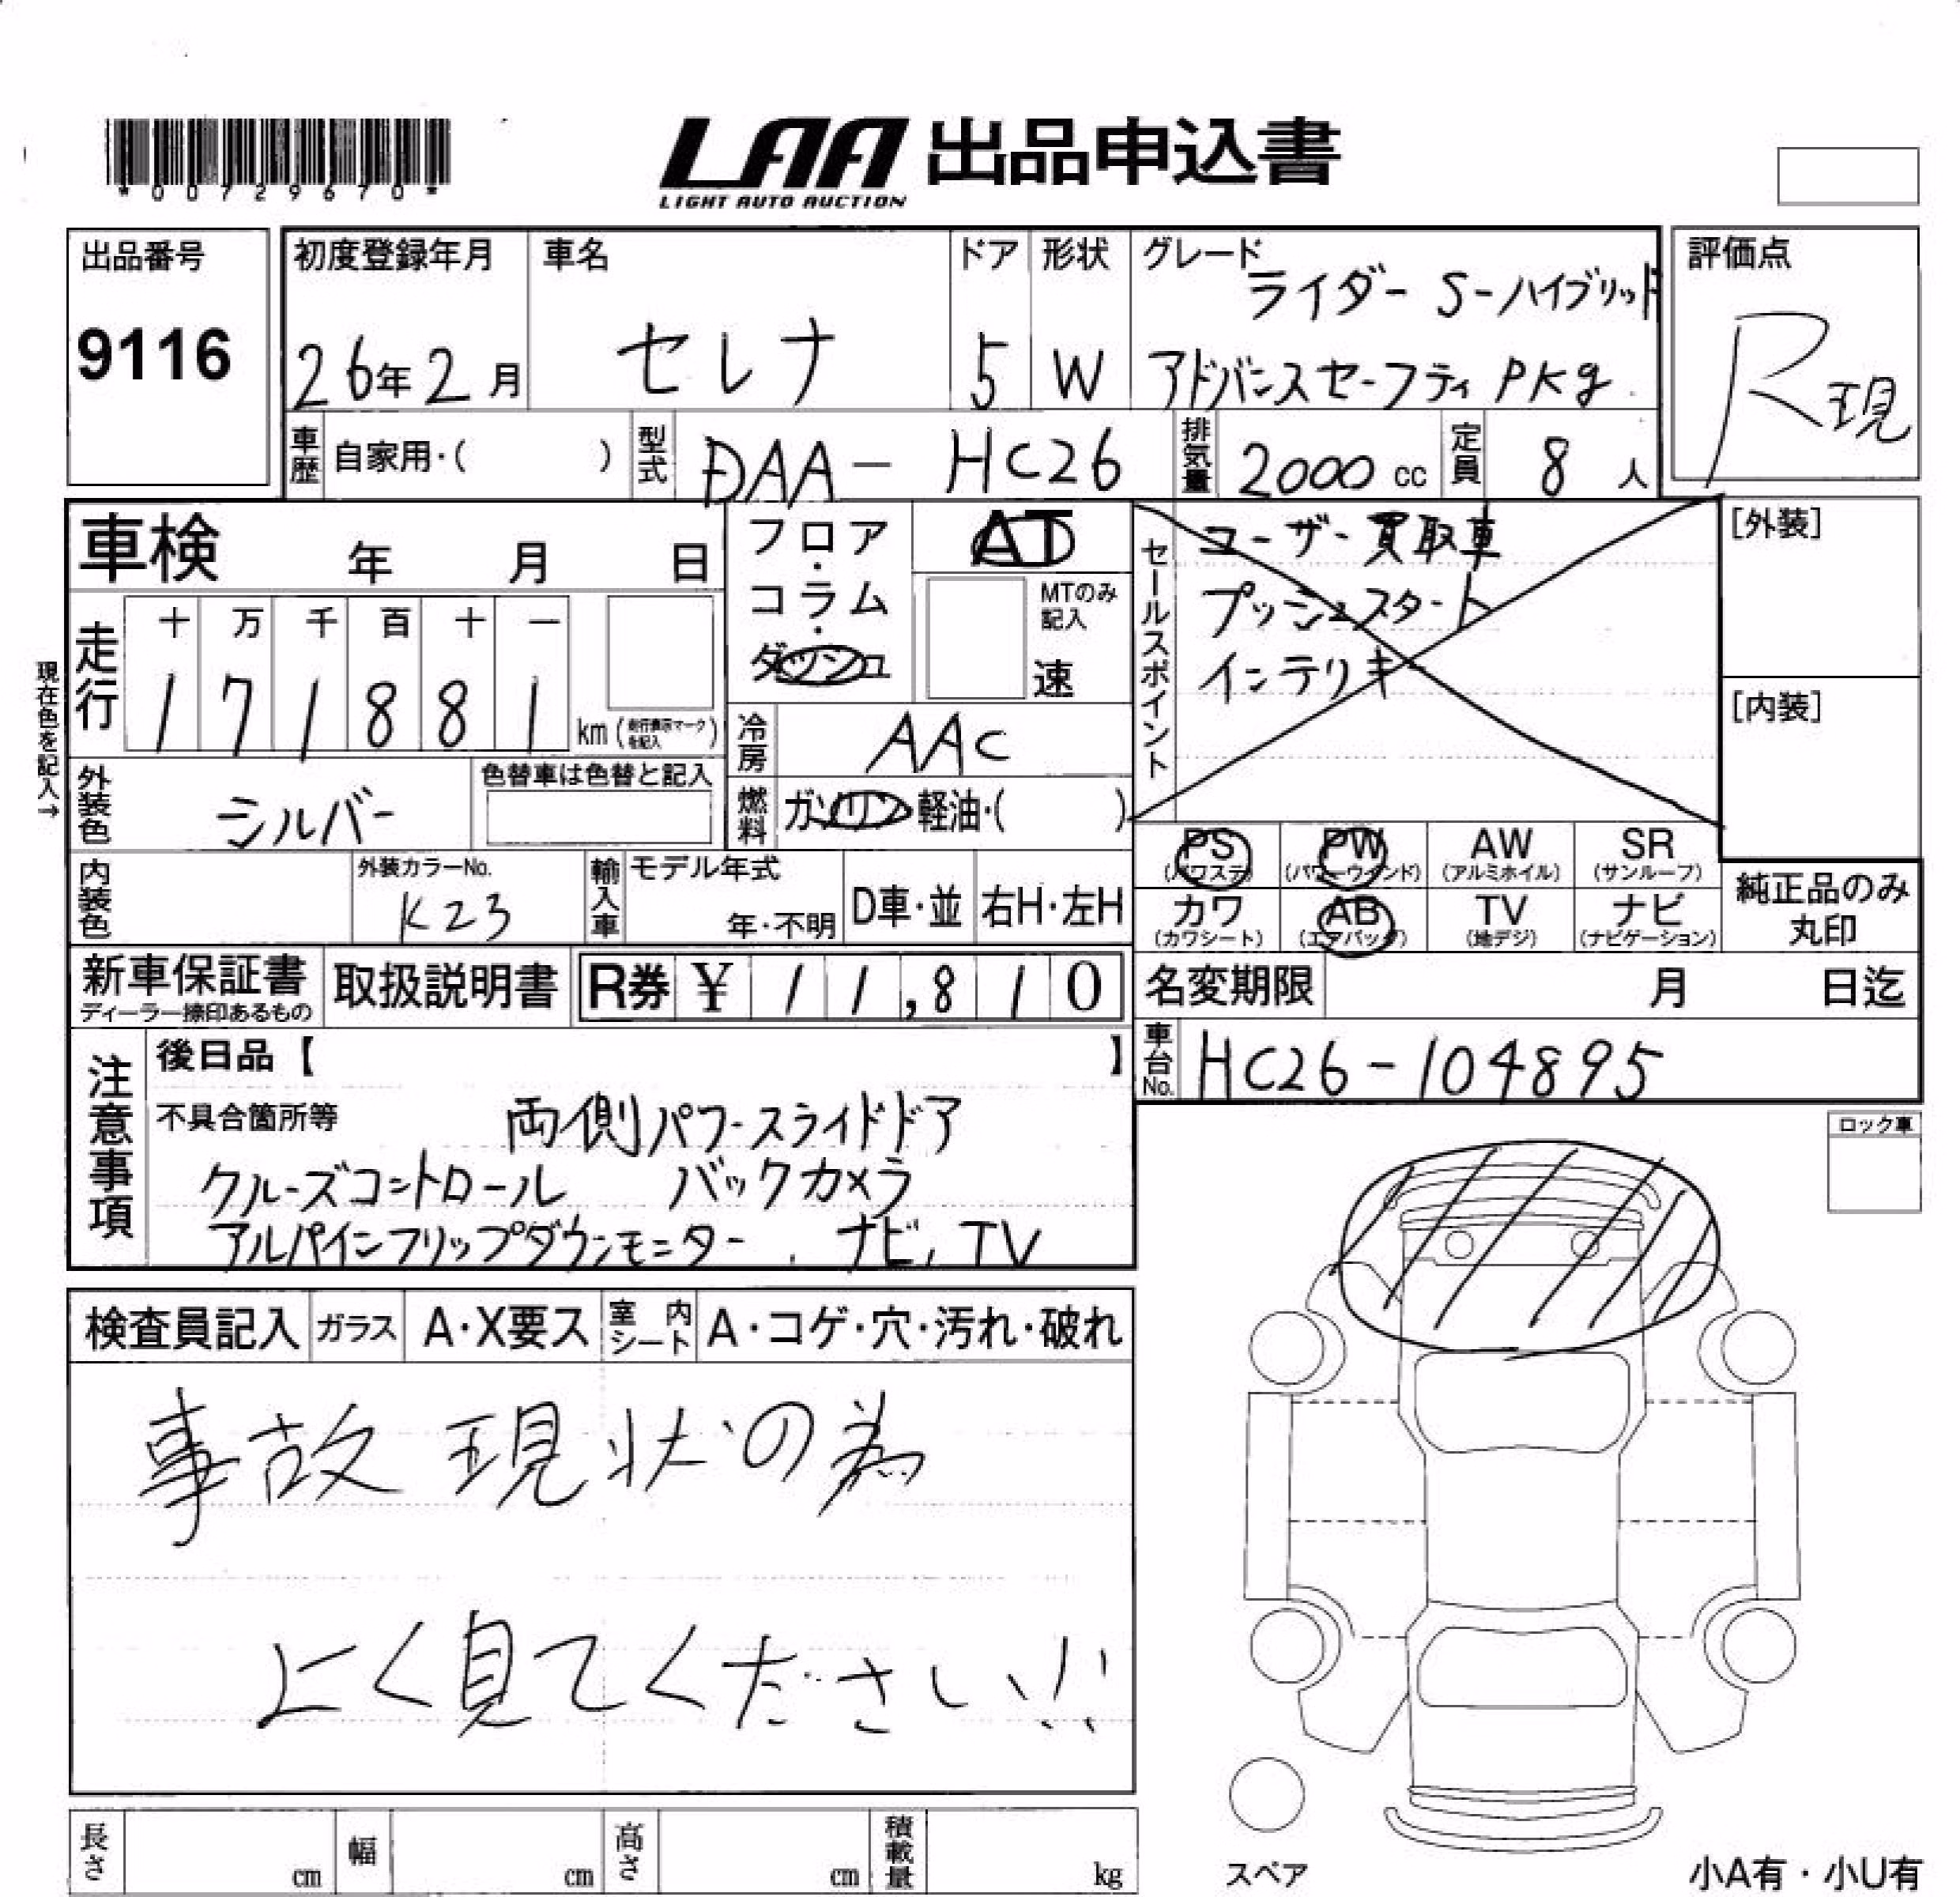 *00729670*
LAA 出品申込書
LIGHT AUTO AUCTION
出品番号
9116
初度登録年月
26年2月
車名
セレナ
ドア
5
形状
W
グレード
ライダー S-ハイブリッド
アドバンスセーフティ PKg
評価点
R現
車歴
自家用・( )
型式
DAA-HC26
排気量
2000 cc
定員
8 人
車検 年 月 日
現在色を記入→
走行
十 万 千 百 十 一
1 7 1 8 8 1
km (走行表示マークを記入)
フロア・コラム・ダッシュ
AT
MTのみ記入
速
セールスポイント
ユーザー買取車
プッシュスタート
インテリキ
[外装]
[内装]
冷房
AAC
外装色
シルバー
色替車は色替と記入
燃料
ガソリン・軽油・( )
PS (パワステ)
PW (パワーウインド)
AW (アルミホイル)
SR (サンルーフ)
カワ (カワシート)
AB (エアバッグ)
TV (地デジ)
ナビ (ナビゲーション)
純正品のみ
丸印
内装色
外装カラーNo.
K23
輸入車
モデル年式
年・不明
D車・並
右H・左H
新車保証書
ディーラー捺印あるもの
取扱説明書
R券 ¥ 11,810
名変期限 月 日迄
車台No.
HC26-104895
注意事項
後日品【 】
不具合箇所等 両側パワースライドドア
クルーズコントロール バックカメラ
アルパインフリップダウンモニター、ナビ、TV
ロック車
検査員記入
ガラス
A・X要ス
室内シート
A・コゲ・穴・汚れ・破れ
事故現状の為
よく見てください!!
長さ cm
幅 cm
高さ cm
積載量 kg
スペア
小A有・小U有